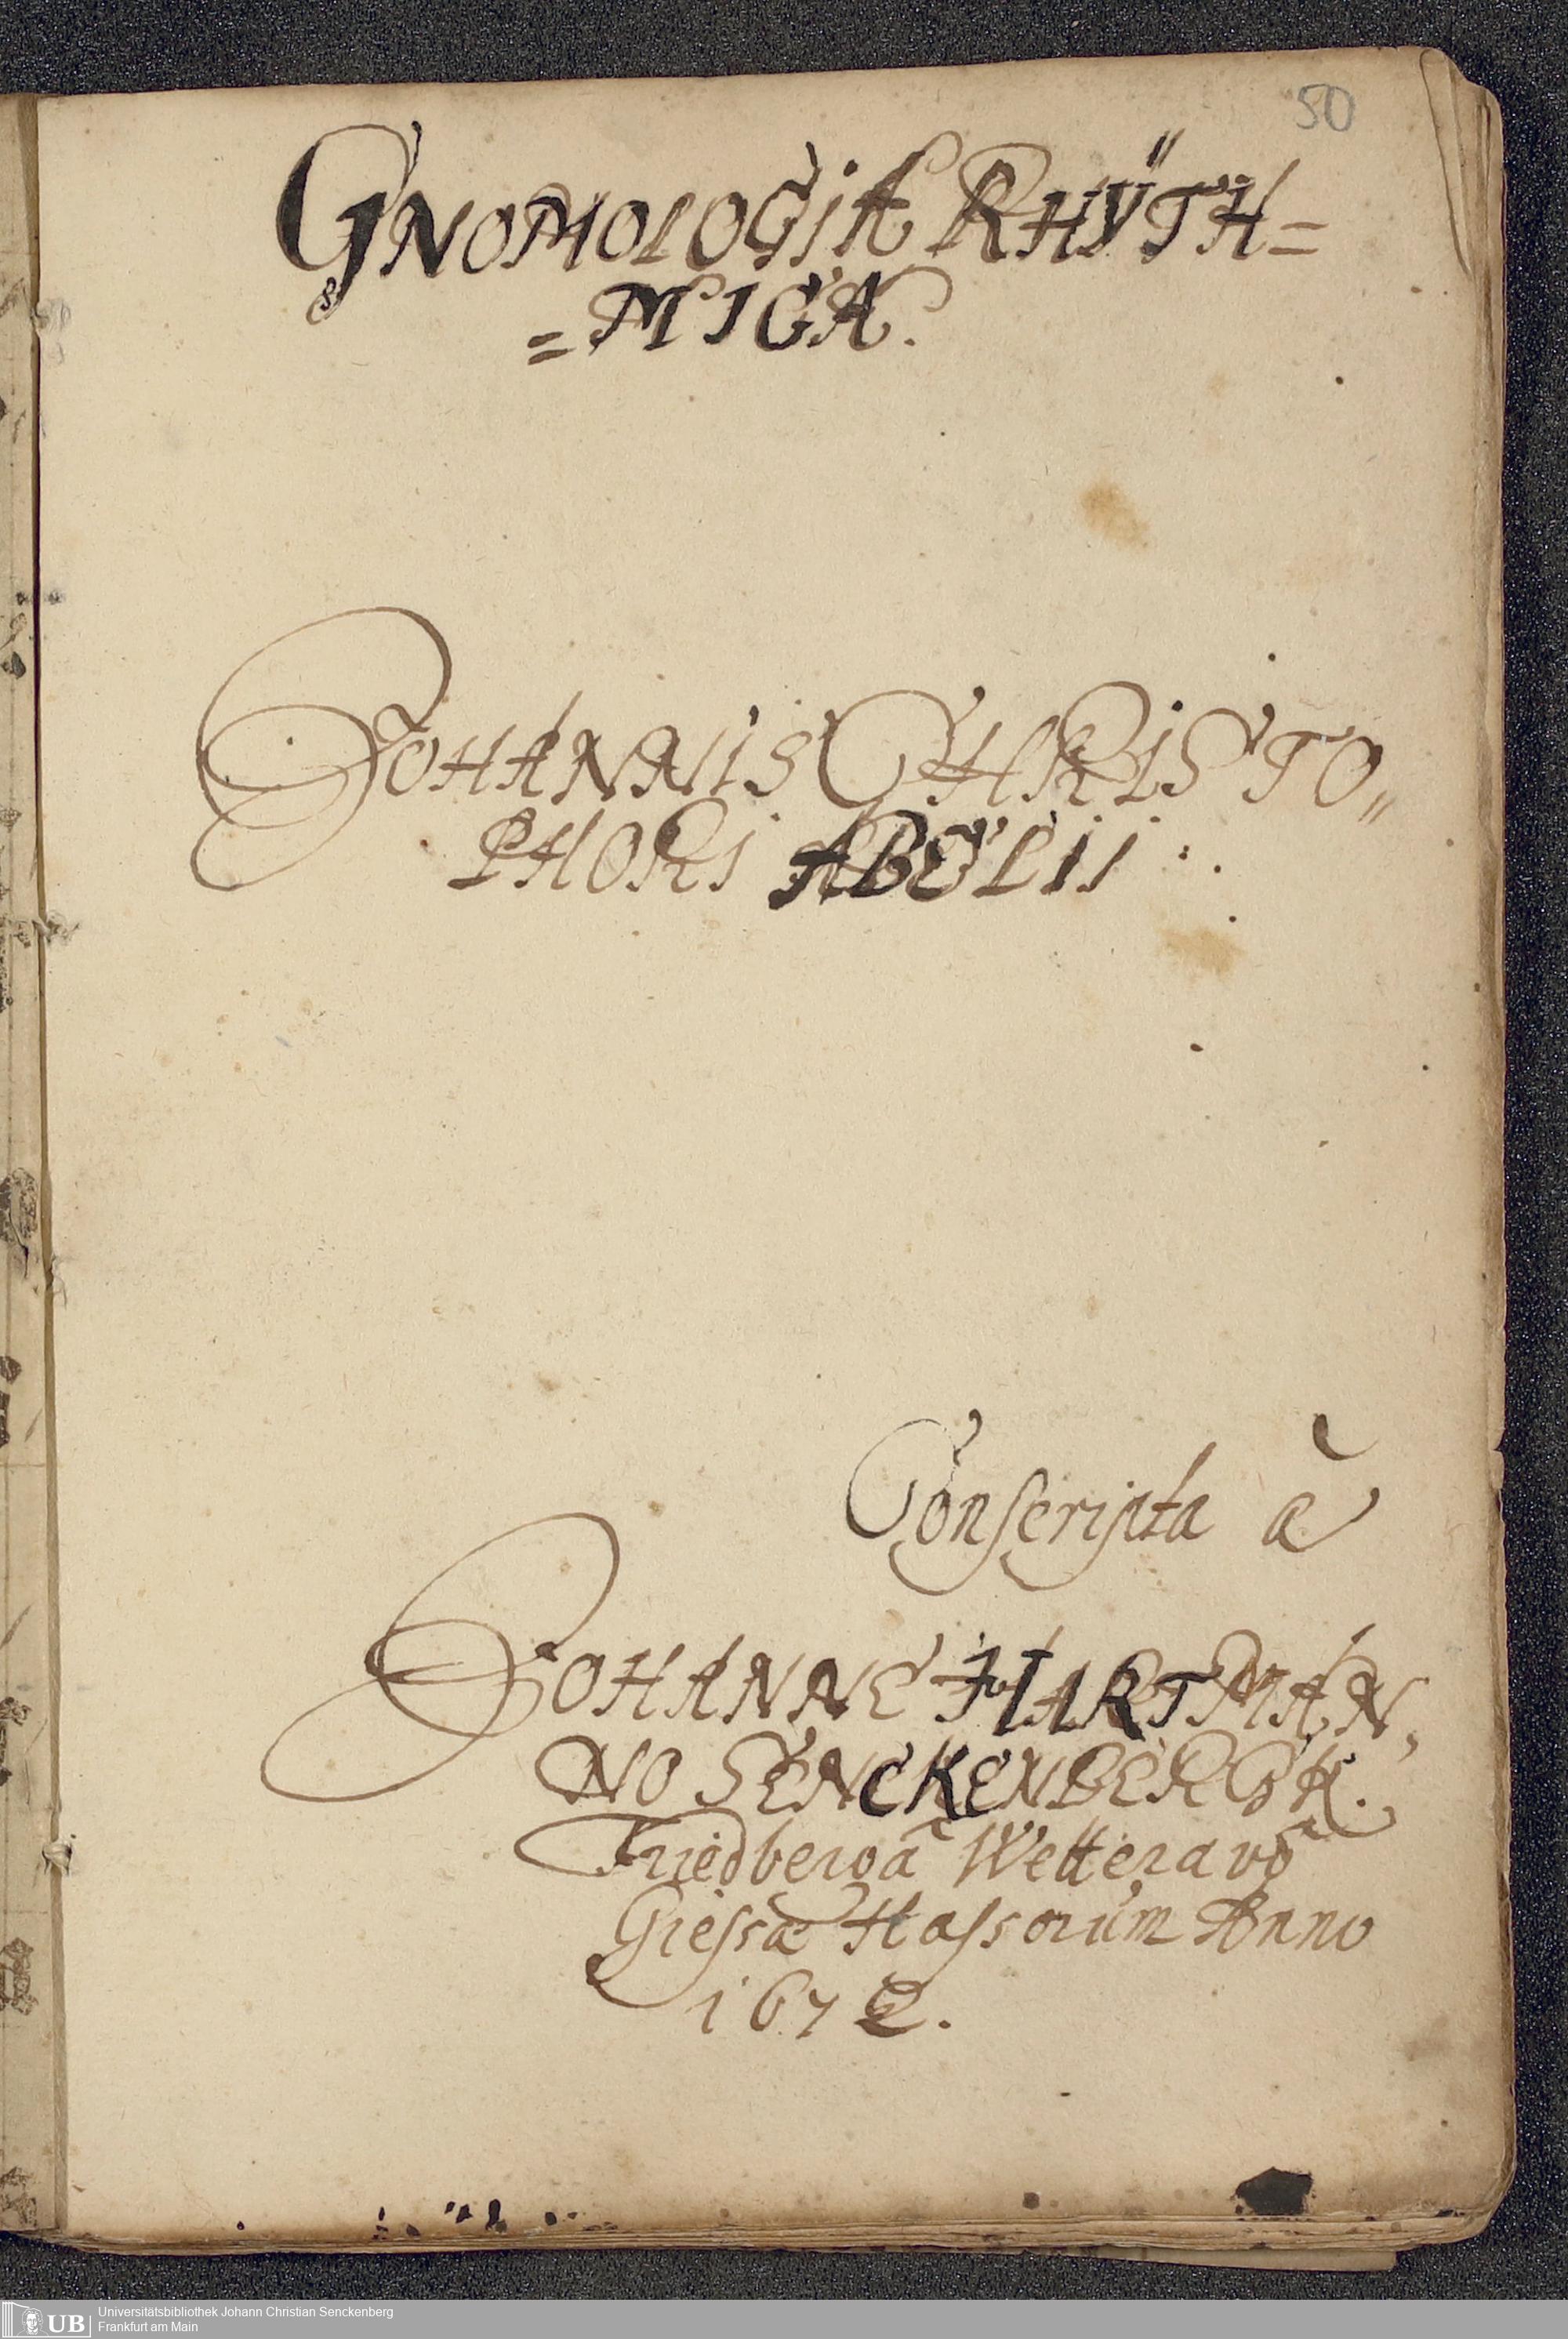 50
GNOMOLOGIA RHŸTH=
=MICA.
JOHANNIS CHRISTO„
PHORI ABELII
Conscripta à
JOHANNE HARTMAN,
NO SENCKENBERGK.
Friedbergã Wetteravõ
Giessæ Hassorum Anno
1672.
UB
Universitätsbibliothek Johann Christian Senckenberg
Frankfurt am Main